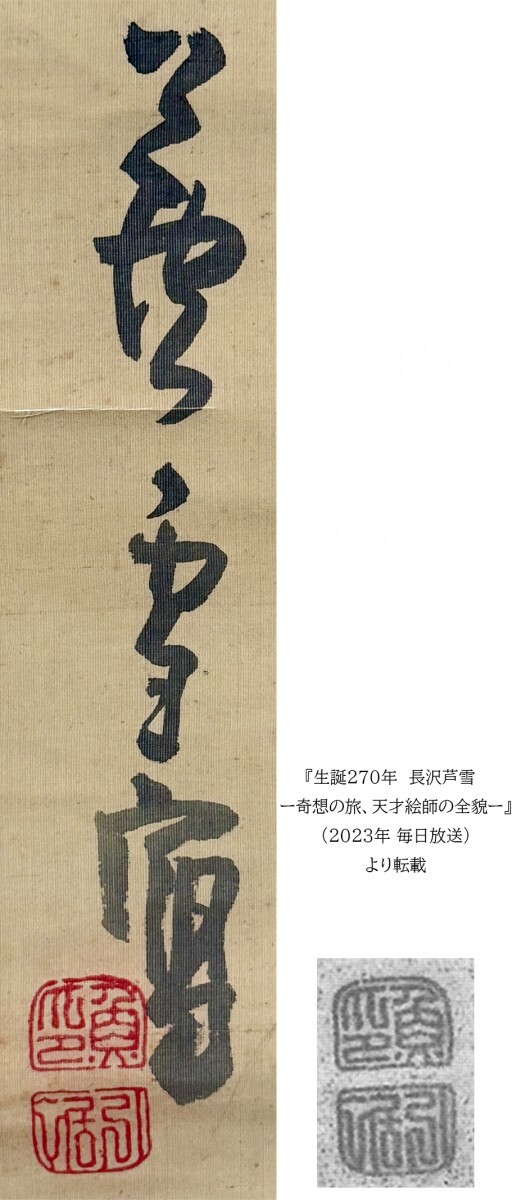 蘆雪寫
『生誕270年　長沢芦雪
ー奇想の旅、天才絵師の全貌ー』
（2023年 毎日放送）
より転載